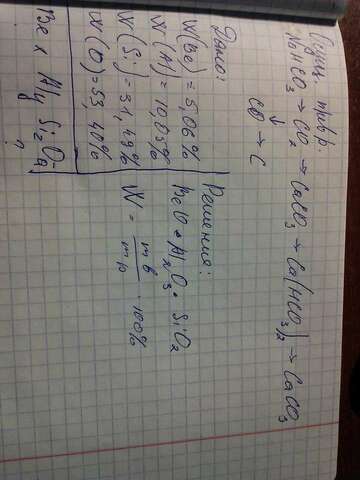 Осущ. превр.
NaHCO₃ → CO₂ → CaCO₃ → Ca(HCO₃)₂ → CaCO₃
↓
CO → C
Дано:
W(Be) = 5,06%
W(Al) = 10,05%
W(Si) = 31,49%
W(O) = 53,40%
Bex Aly Siz Oq
?
Решения:
BeO • Al₂O₃ • SiO₂
W = mв / mр · 100%